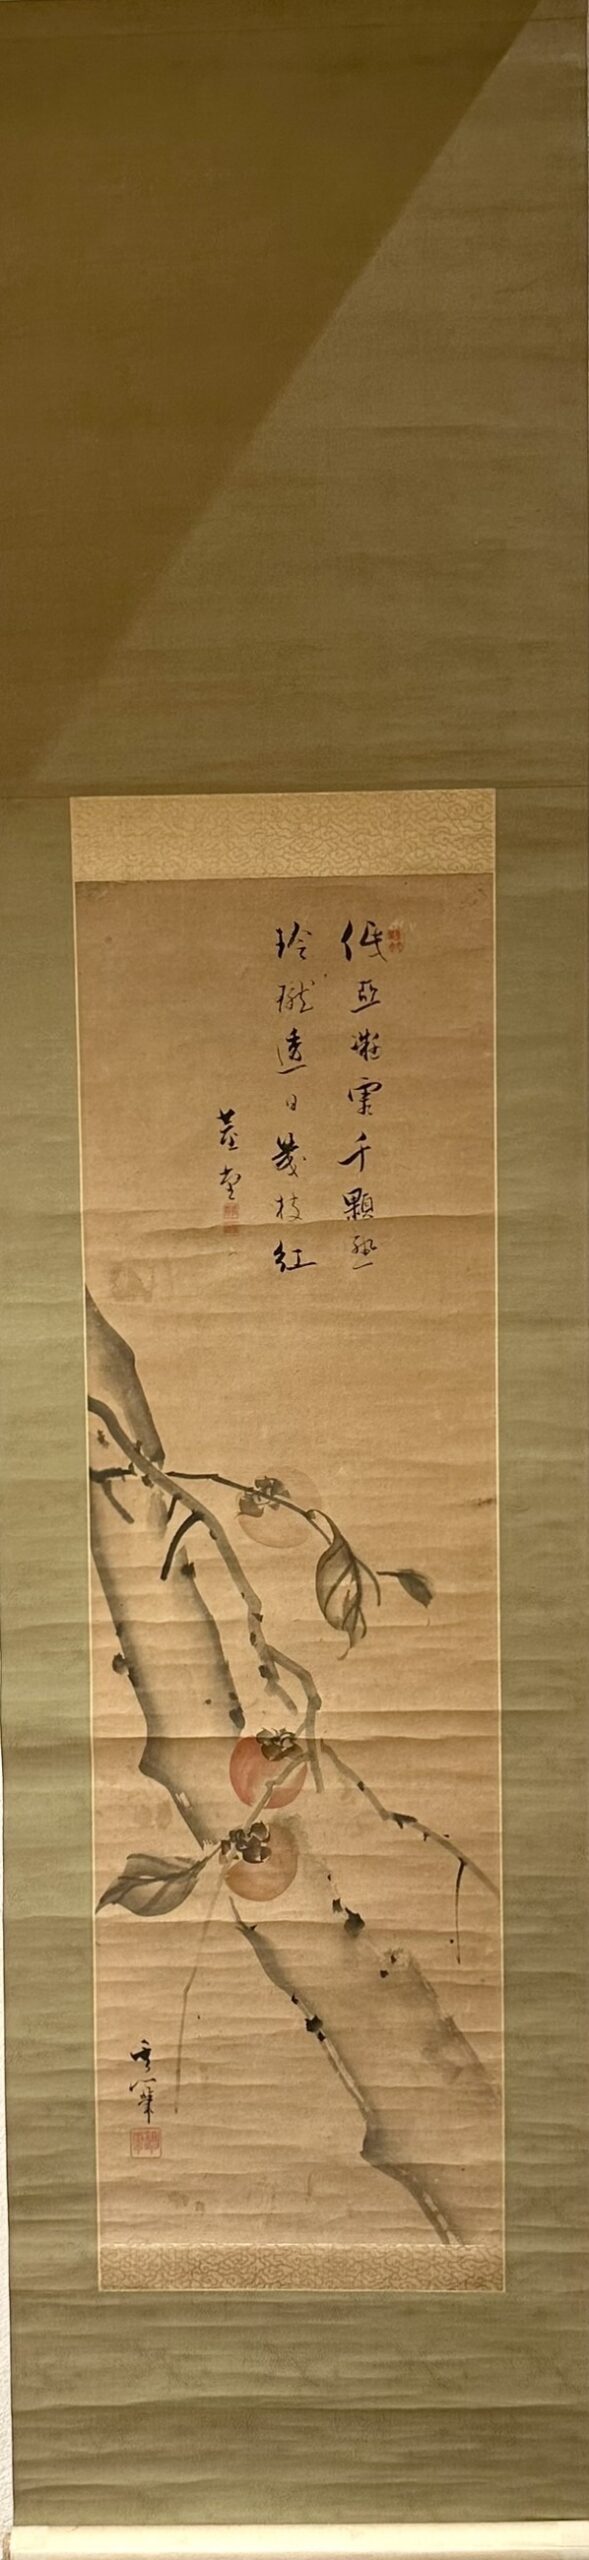 低亞凝霜千顆熟
玲瓏透日幾枝紅
堂
筆